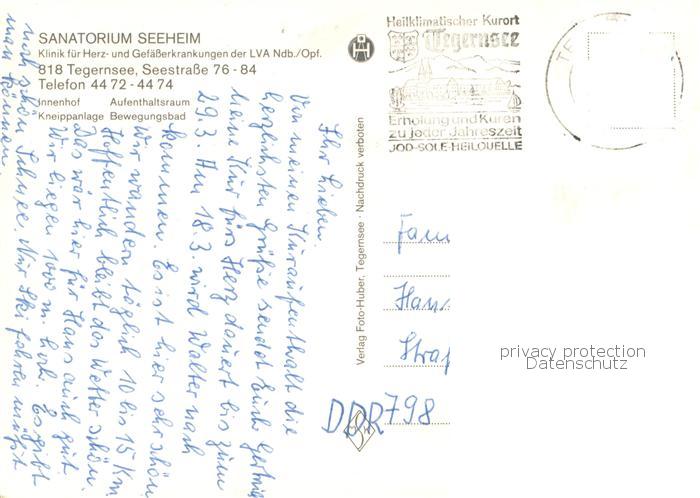 SANATORIUM SEEHEIM
Klinik für Herz- und Gefäßerkrankungen der LVA Ndb./Opf.
818 Tegernsee, Seestraße 76 - 84
Telefon 44 72 - 44 74
Innenhof Aufenthaltsraum
Kneippanlage Bewegungsbad
Heilklimatischer Kurort
Tegernsee
Erholung und Kuren
zu jeder Jahreszeit
JOD-SOLE-HEILQUELLE
TE
Verlag Foto-Huber, Tegernsee · Nachdruck verboten
Ihr Lieben.
Von meinen Kuraufenthalt die
herzlichsten Grüße sendet Euch
Meine Kur fürs Herz dauert bis zum
29.3. Am 18.3. wird Walter nach
kommen. Es ist hier sehr schön
Wir wandern täglich 10 bis 15 Km.
Hoffentlich bleibt das Wetter schön.
Das wär hier für Hans auch gut
Wir liegen 1000 m hoch. Es gibt
noch schön Schnee. Nur Ski fahren müßt
man können.
Fam
Hans
Straß
DDR 798
privacy protection
Datenschutz